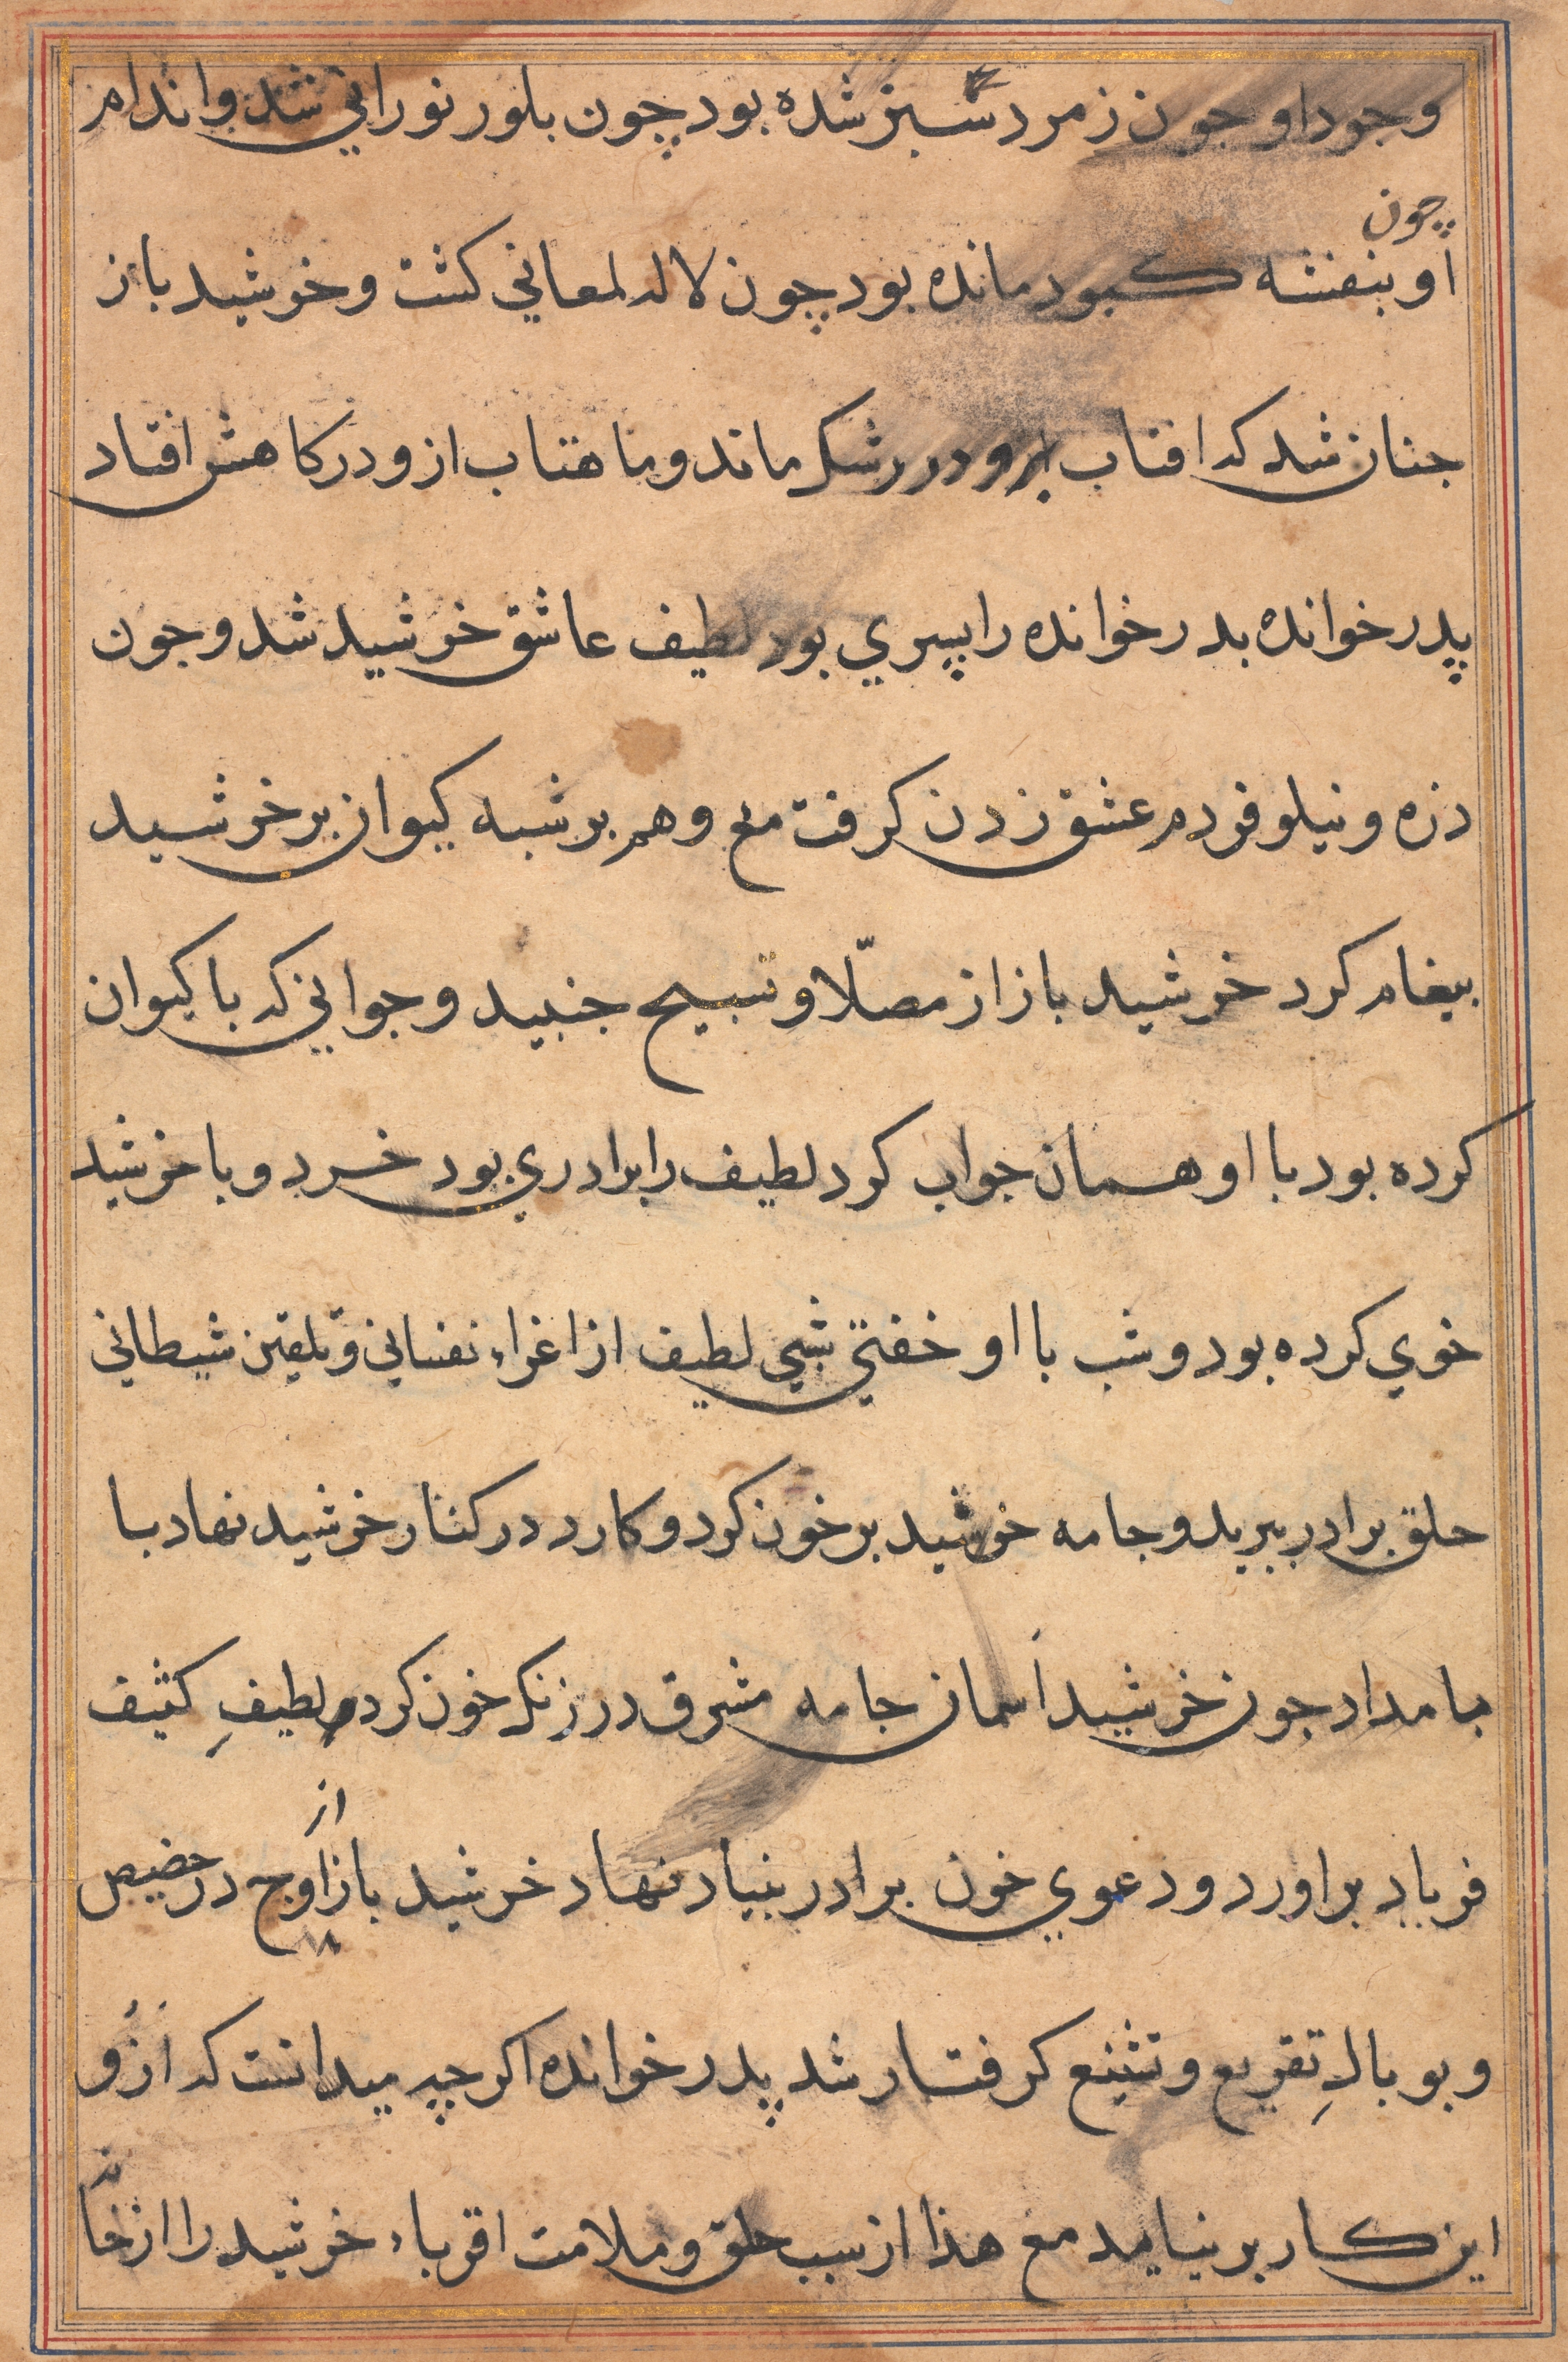 وجود او جون زمرد سبز شده بود چون بلور نوراني شد و اندام
چون
او بنفشه كبود مانده بود چون لاله لمعاني كشت و خرشيد باز
جنان شد كه افتاب برو در رشك ماند و ماهتاب ازو در كاهش افتاد
پدر خوانده بدر خوانده را پسري بود لطيف عاشق خرشيد شد و جون
ذره و نيلوفر دم عشق زدن كرفت مع وهم بر شبه كيوان بر خرشيد
بيغام كرد خرشيد باز از مصلّا و تسبيح جنبيد و جوابي كه با كيوان
كرده بود با او همان جواب كرد لطيف را برادري بود خرد و با خرشيد
خوي كرده بود و شب با او خفتي شبي لطيف از اغراء نفساني و تلقين شيطاني
حلق برادر ببريد و جامه خرشيد بر خون كرد و كارد در كنار خرشيد نهاد با
بامداد جون خرشيد اسمان جامه مشرق در زنك خون كرد لطيفِ كثيف
از
فرياد براورد و دعوي خون برادر بنياد نهاد خرشيد باز اوج در حضيض
و بوبالِ تقريع و تشنيع كرفتار شد پدر خوانده اكر چه ميدانست كه ازو
اين كار برنيايد مع هذا از سبب حلق و ملامت اقرباء خرشيد را از خانه